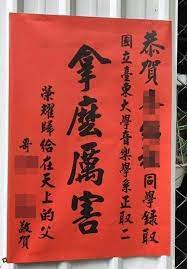 恭賀
同學錄取
國立臺東大學音樂學系正取二
拿麼厲害
榮耀歸給在天上的父
哥
敬賀